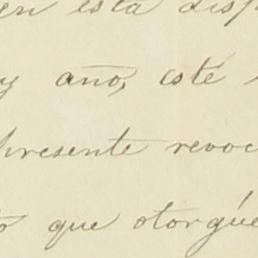 en esta disp
y año, esté
presente revoc
que otorgue